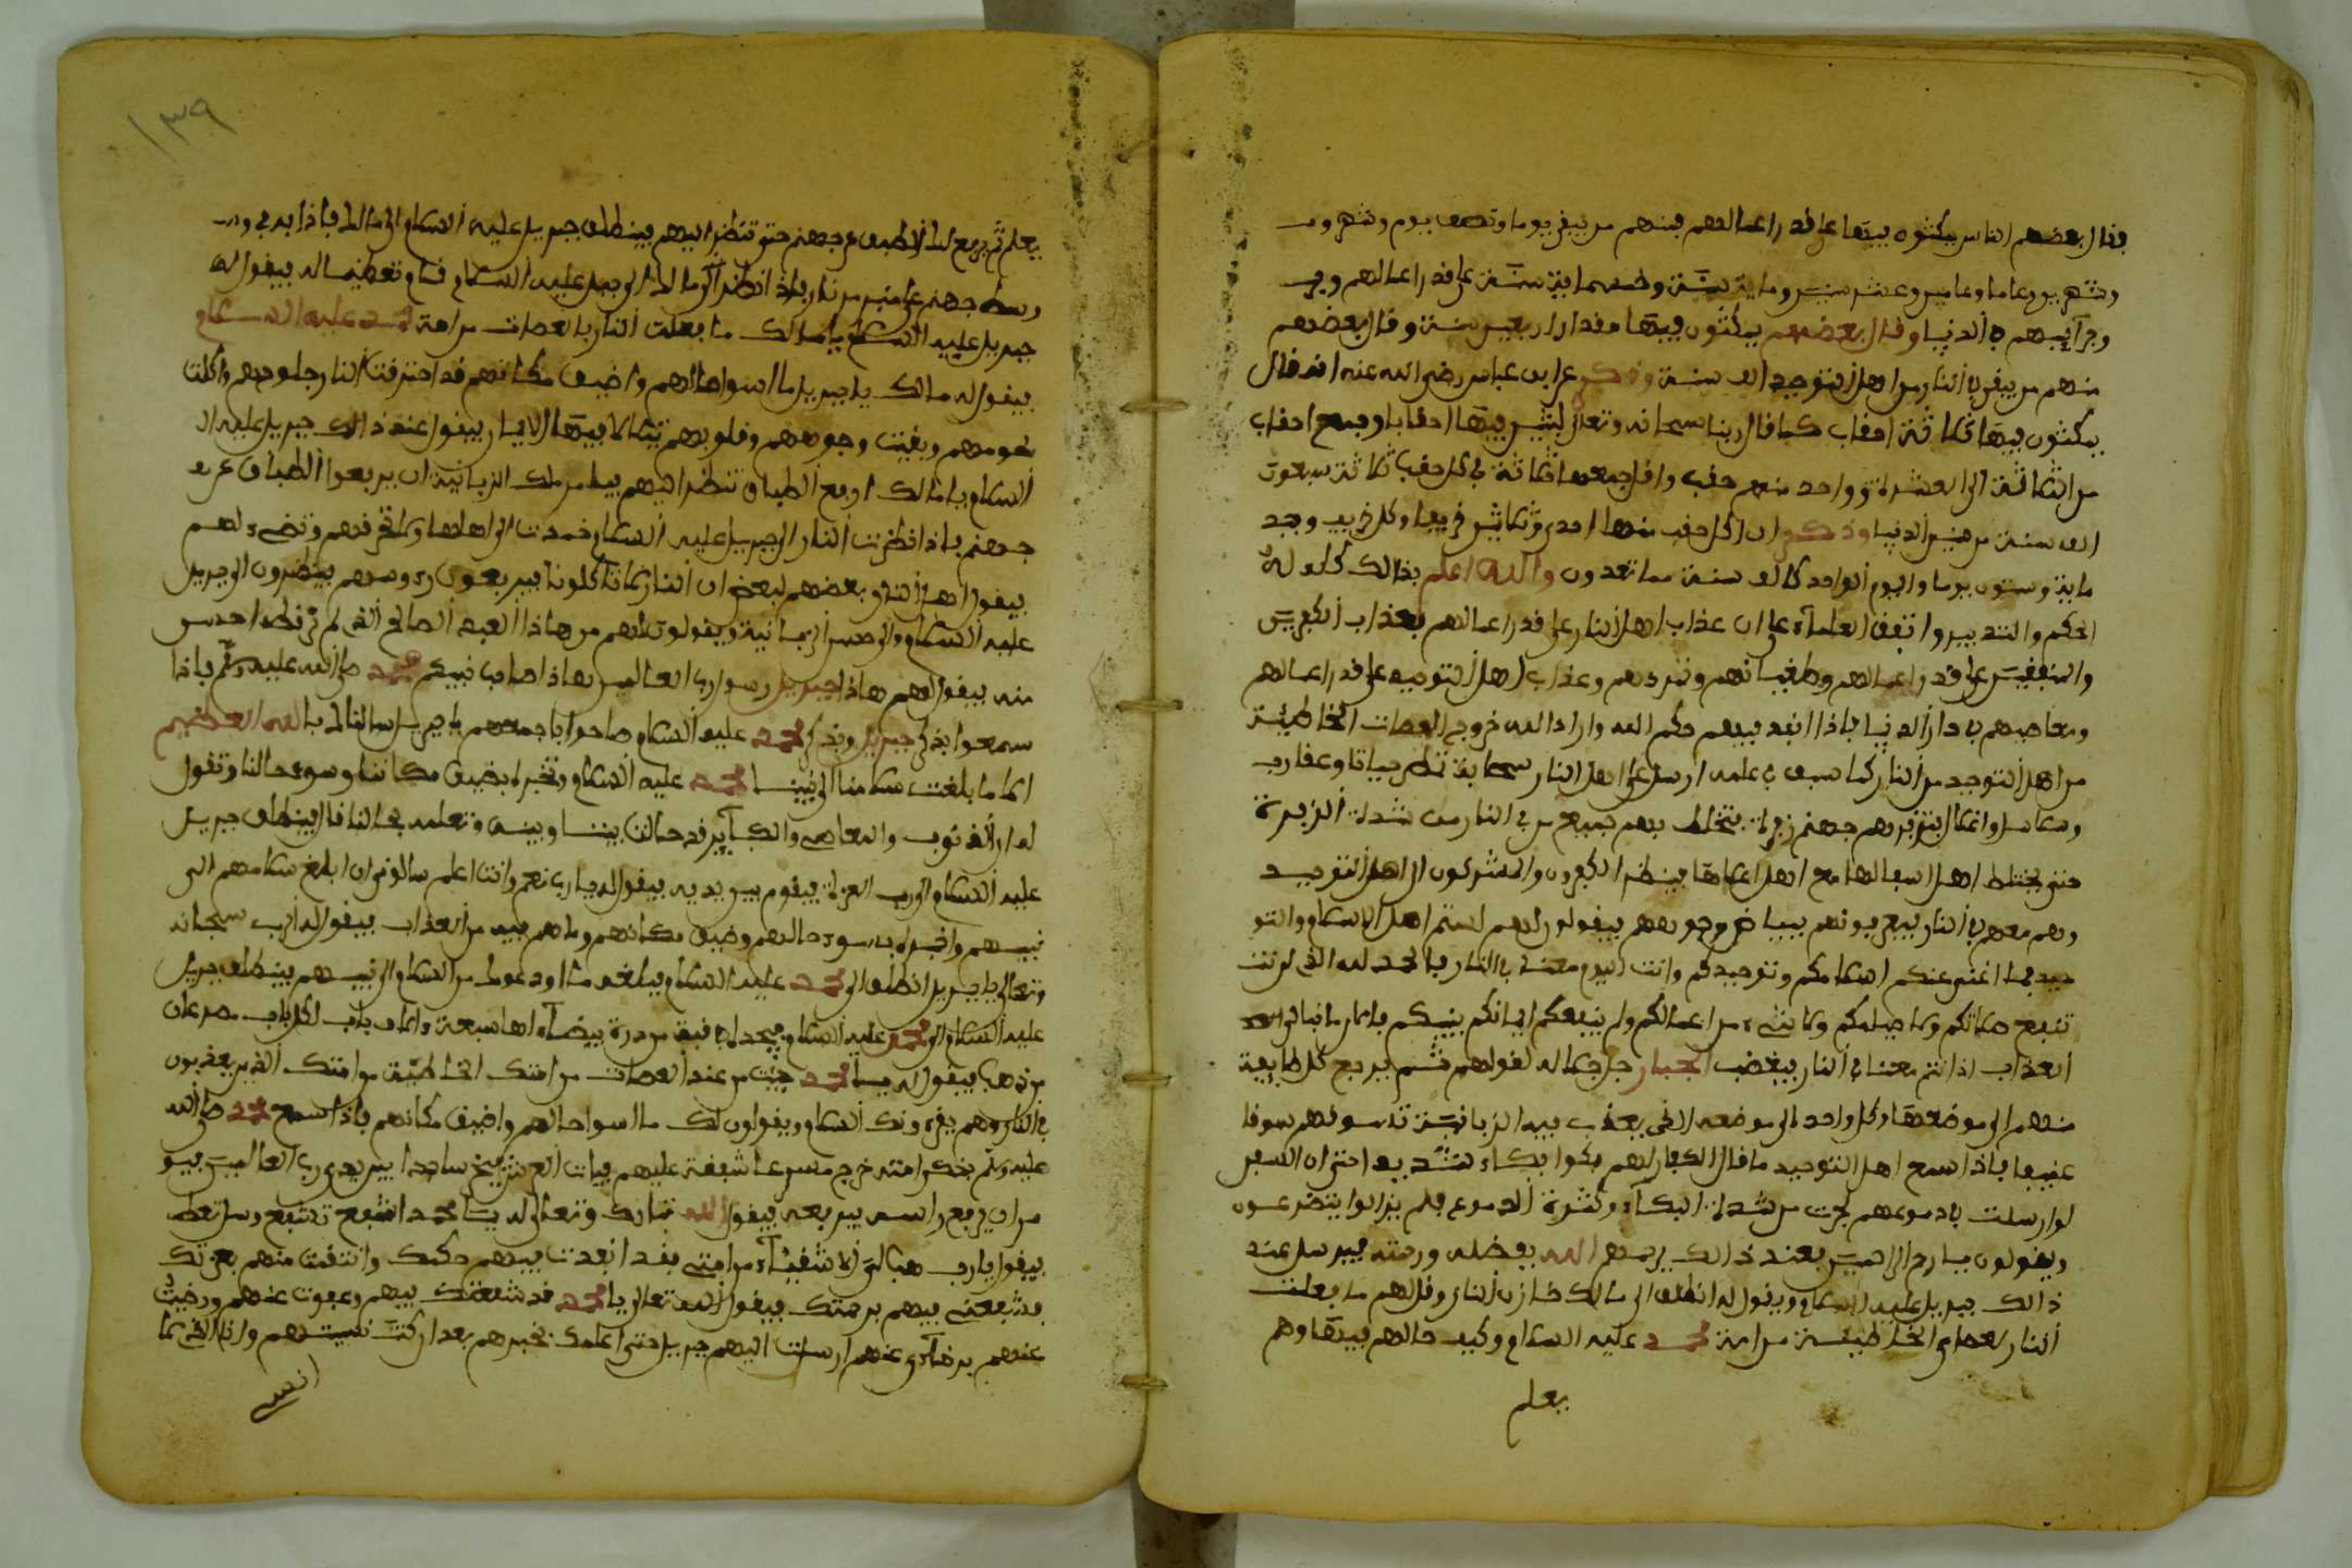 فقال بعضهم الناس يمكثون فيها على قدر اعمالهم فمنهم من يبقى يوما ونصف يوم وشهر و
وشهرين وعاما وعامين وعشر سنين وماية سنة وخمسماية سنة على قدر اعمالهم و
وجرآيمهم في الدنيا وقال بعضهم يمكثون فيها مقدار اربعين سنة وقال بعضهم
منهم من يبقى في النار من اهل التوحيد الف سنة وذكر عن ابن عباس رضي الله عنه انه قال
يمكثون فيها ثلاثة احقاب كما قال ربنا سبحانه وتعالى لبثين فيها احقابا وجمع احقاب
من الثلاثة الى العشرة وواحد منهم حقب واقل جمعها ثلاثة في كل حقب ثلاثة سبعون
الف سنة من سنين الدنيا وذكر ان كل حقب منها احدى وثلاثين خريفا وكل خريف وجد
ماية وستون يوما واليوم الواحد كالف سنة مما تعدون والله اعلم بذالك كله له
الحكم والتدبير واتفق العلمآء على ان عذاب اهل النار على قدر اعمالهم فعذاب الكفرين
والمنفقين على قدر اعمالهم وطغيانهم وتمردهم وعذاب اهل التوحيد على قدر اعمالهم
ومعاصيهم في دار الدنيا فاذا انفذ فيهم حكم الله واراد الله خروج العصات الخاطئة
من اهل التوحيد من النار كما سبق في علمه ارسل على اهل النار سحابة تمطر حياتا وعقارب
وسلاسل وانكال فتزفرهم جهنم زفرة يختلط بهم جميع من في النار من شدة الزفرة
حتى يختلط اهل اسفالها مع اهل اعلاها فينظر الكفرون والمشركون الى اهل التوحيد
وهم معهم في النار فيعرفونهم ببياض وجوههم فيقولون لهم لستم اهل الاسلام والتو
حيد فما اغنى عنكم اسلامكم وتوحيدكم وانتم اليوم معنا في النار فالحمد لله الذي لم
تنفع صلاتكم ولا صيامكم ولا شيء من اعمالكم ولم ينفعكم ايمانكم بنبيكم
العذاب اذ انتم معنا في النار فيغضب الجبار جل جلاله لقولهم ثم يرجع كل طايفة
منهم الى موضعها وكل واحد الى موضعه الذي يعذب فيه الزبانية تسوقهم سوقا
عنيفا فاذا سمع اهل التوحيد ما قال الكفار لهم بكوا بكاء شديدا حتى ان السفن
لو ارسلت في دموعهم لجرت من شدة البكآء وكثرة الدموع فلم يزالوا يتضرعون
ويقولون يا ارحم الراحمين فعند ذالك يرحمهم الله بفضله ورحمته فيرسل عند
ذالك جبريل عليه السلام ويقول له انطلق الى مالك خازن النار وقل لهم ما فعلت
النار بعصاة الخاطيئة من امة محمد عليه السلام وكيف حالهم فيها وهم
يعلم
١٣٩
يعلم ثم يرفع لك الاطباق عن جهنم حتى تنظر اليهم فينطلق جبريل عليه السلام الى مالك فاذا به في و
وسط جهنم على منبر من نار فاذا نظر مالك الى جبريل عليه السلام قام تعظيما له فيقول له
جبريل عليه السلام يا مالك ما فعلت النار بالعصات من امة محمد عليه السلام
فيقول له مالك يا جبريل ما اسوا حالهم واضيق مكانهم قد احترقت النار جلودهم واكلت
لحومهم وبقيت وجوههم وقلوبهم يتلالا فيها الايمان فيقول عند ذالك جبريل عليه ال
السلام يا مالك ارفع الطباق تنظر اليهم فيامر مالك الزبانية ان يرفعوا الطباق عن
جهنم فاذا نظرت النار الى جبريل عليه السلام خمدت الى اهلها ولا تحرقهم وتضيء لهم
فيقول اهل النار بعضهم لبعض ان النار لا تاكلونا فيرفعون رءوسهم فينظرون الى جبريل
عليه السلام والى حسن الزبانية ويقولون لهم من هاذا العبد الصالح الذي لم نر قط احسن
منه فيقولو لهم هاذا جبريل رسول رب العالمين هاذا صاحب نبيكم محمد صلى الله عليه وسلم فاذا
سمعوا بذكر جبريل وبذكر محمد عليه السلام صاحوا باجمعهم يا جبريل سالناك بالله العظيم
الا ما بلغت سلامنا الى نبينا محمد عليه السلام وتخبره بضيق مكاننا وسوء حالنا وتقول
له ان الذنوب والمعاصي والكبآير قد حالت بيننا وبينه وتعلمه بحالنا قال فينطلق جبريل
عليه السلام الى رب العزة فيقوم بين يديه فيقول له يا رب نعم وانت اعلم سالوني ان ابلغ سلامهم الى
نبيهم واخبره بسوء حالهم وضيق مكانهم وما هم فيه من العذاب فيقول له الرب سبحانه
وتعالى يا جبريل انطلق الى محمد عليه السلام فبلغه ما اودعوك من السلام الى نبيهم فينطلق جبريل
عليه السلام الى محمد عليه السلام فيجده في قبة من درة بيضآء لها سبعة ءالاف باب لكل باب مصرعان
من ذهب فيقول له يا محمد جيت من عند العصات من امتك الخاطيّة من امتك الذين يعذبون
في النار وهم يقرءونك السلام ويقولون لك ما اسوا حالهم واضيق مكانهم فاذا سمع محمد صلى الله
عليه وسلم بذكر امته خرج مسرعا شفقة عليهم فيات العرش فيخر ساجدا بين يدي رب العالمين فيو
مر ان يرفع راسه فيرفعه فيقول الله تبارك وتعالى له يا محمد اشفع تشفع وسل تعط
فيقول يا رب هب لي الاشقيآء من امتي فقد انفذت فيهم حكمك وانتقمت منهم بعزتك
فشفعني فيهم برحمتك فيقول الله تعالى يا محمد قد شفعتك فيهم وعفوت عنهم ورضيت
عنهم برضآءي عنهم ارسلت اليهم جبريل حتى اعلمك بخبرهم بعد ان كنت نسيتهم وانا الذي لا
انسى